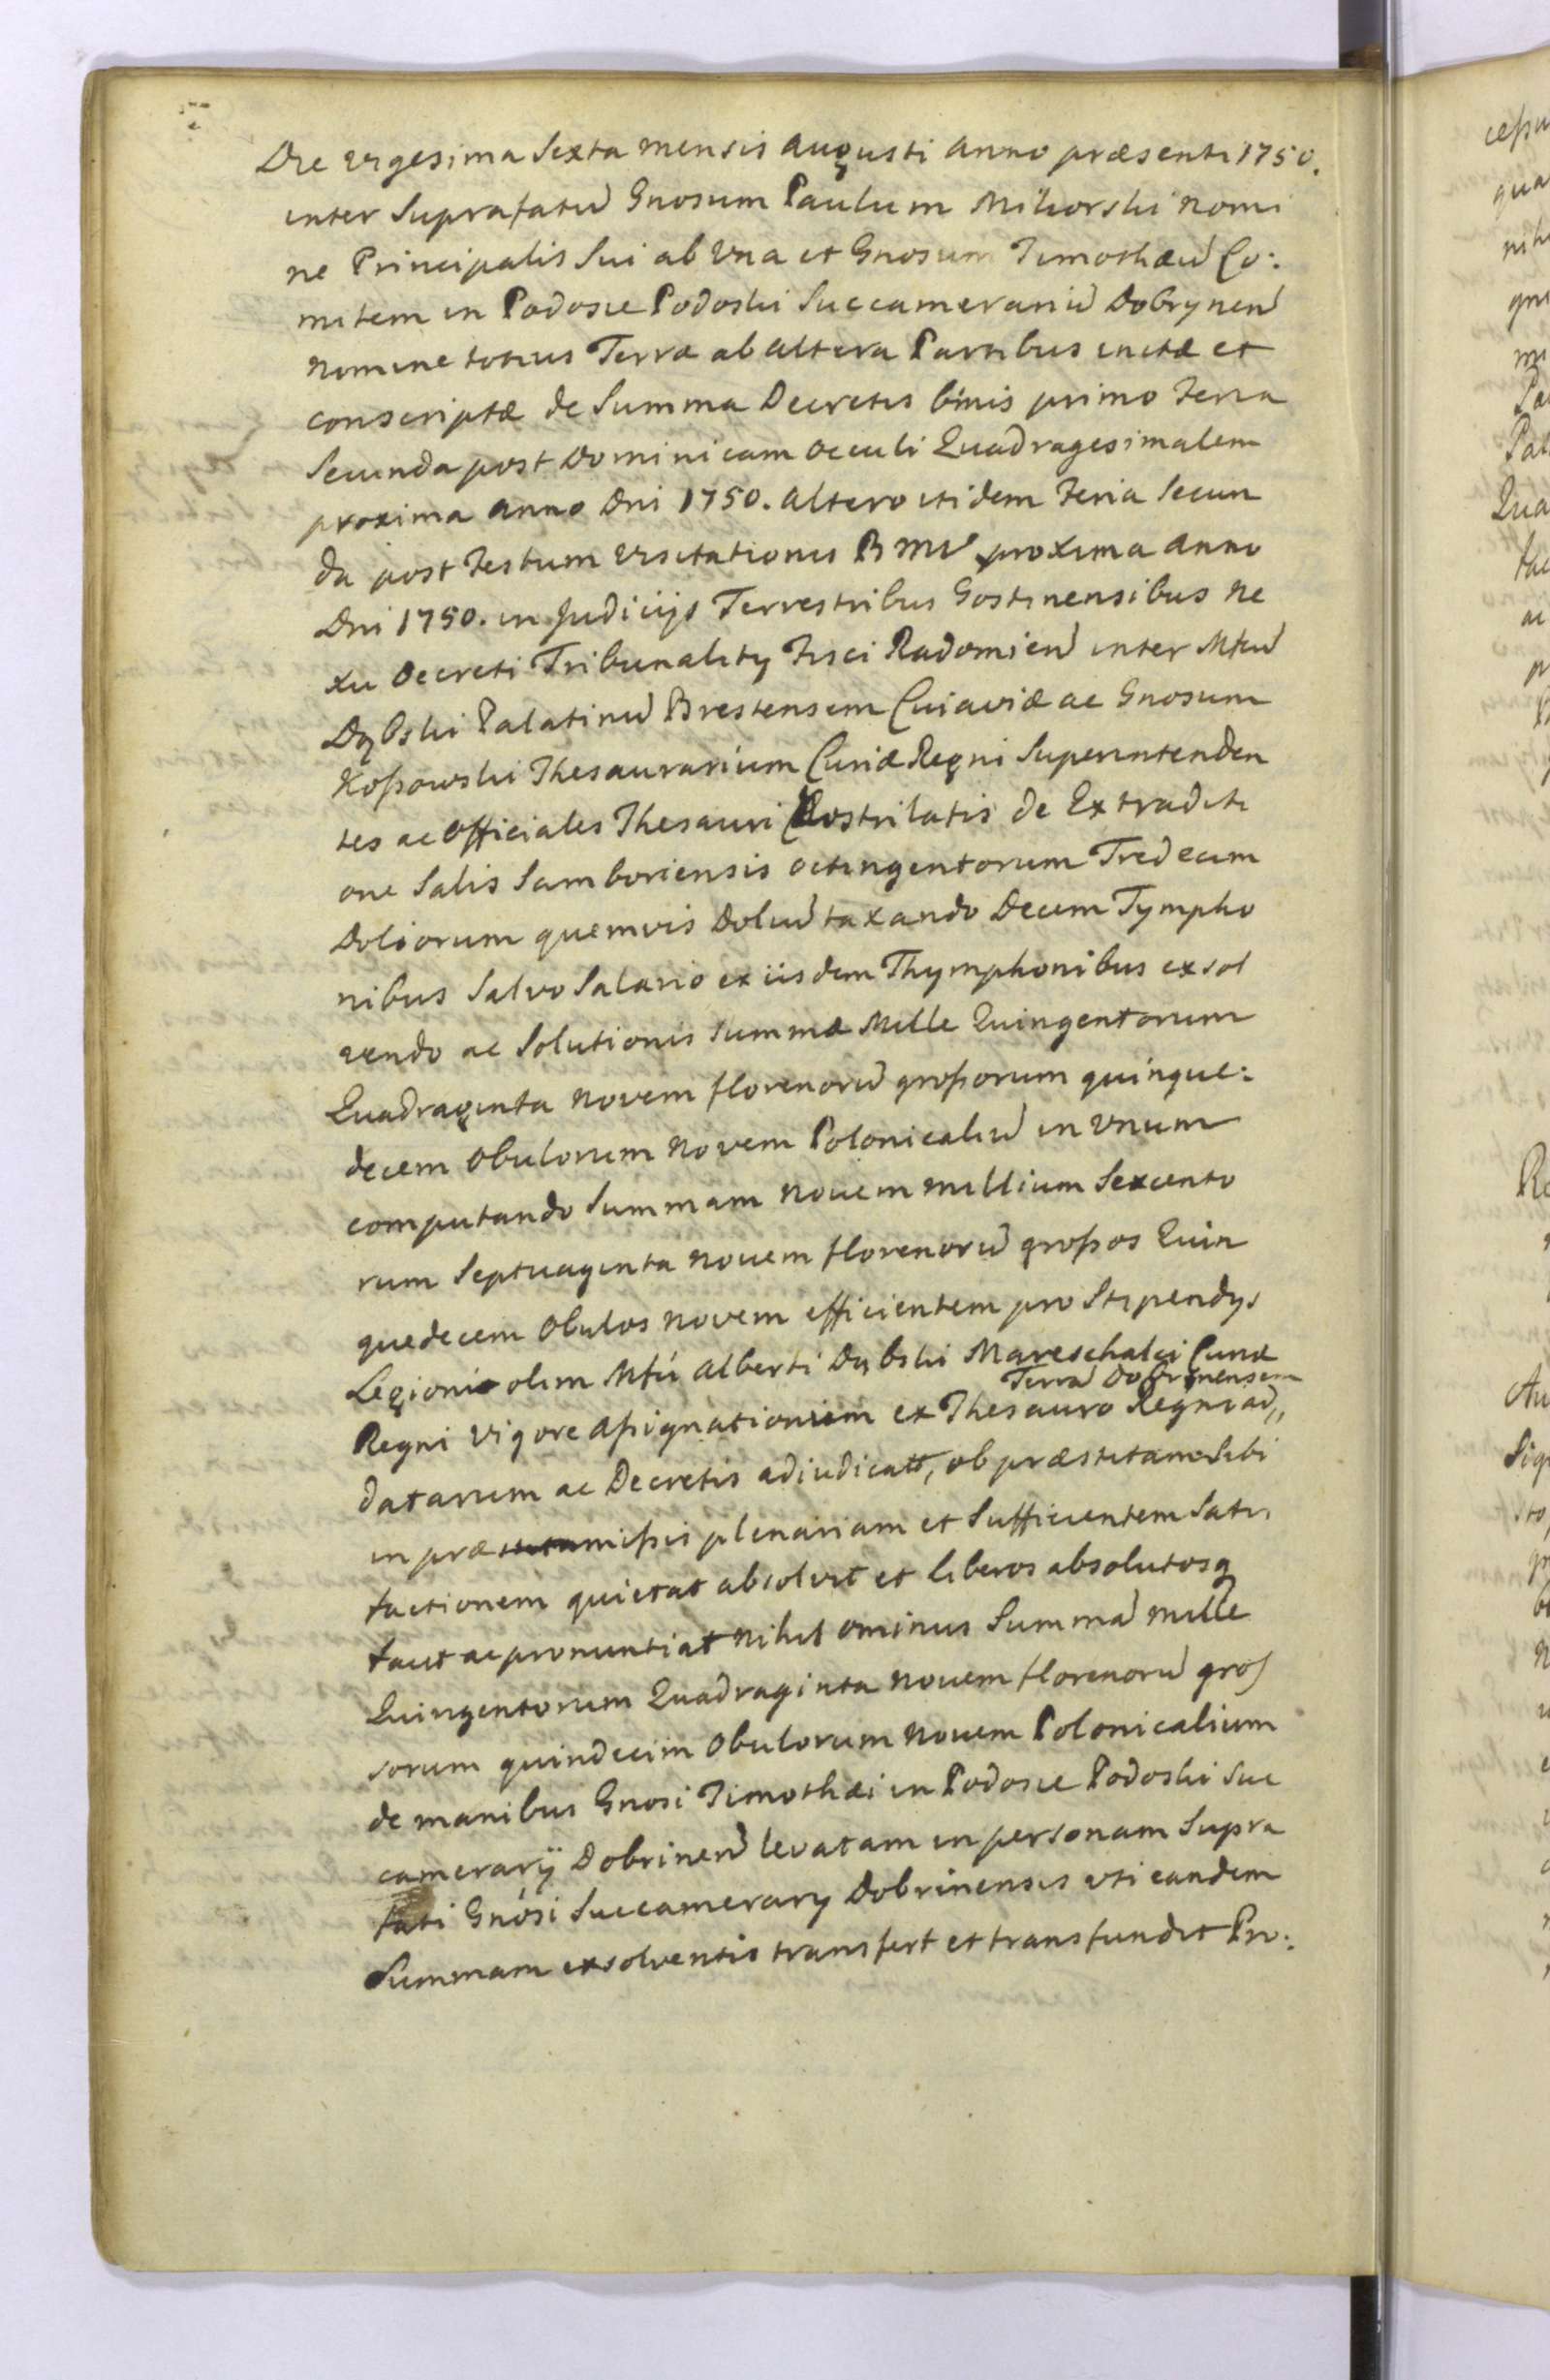 Die vigesima Sexta mensis Augusti Anno præsenti 1750.
inter Suprafatū Gnosum Paulum Miliorski nomi
ne Principalis Sui ab Vna et Gnosum Timothæū Co:
mitem in Podosie Podoski Succamerariū Dobrynen̄
nomine totius Terræ ab altera Partibus initæ et
conscriptæ de Summa Decretis binis primo Feria
Secunda post Dominicam Occuli Quadragesimalem
proxima Anno Dni 1750. altero itidem Feria Secun
da post Festum Visitationis BMV proxima Anno
Dni 1750. in Judicijs Terrestribus Gostinensibus ne
xu Decreti Tribunality Fisci Radomien̄ inter Mfcū
Dąbski Palatinū Brestensem Cuiaviæ ac Gnosum
Koßowski Thesaurarium Curiæ Regni Superintenden
tes ac Officiales Thesauri de Extraditi
one Salis Samboriensis octingentorum Tredecim
Doliorum quemvis Doliū taxando Decem Tympho
nibus Salvo Salario ex iisdem Thymphonibus exsol
vendo ac Solutionis Summæ Mille Quingentorum
Quadraginta novem florenorū großorum quinque:
decem Obulorum novem Polonicaliū in Vnum
computando Summam novem millium Sexcento
rum Septuaginta novem florenorū großos Quin
quedecem Obulos novem efficientem pro Stipendys
Legionis olim Mfci Alberti Dąbski Mareschalci Curiæ
Terrā Dobrinensem
Regni vigore Aßignationum ex Thesauro Regni ad,,
datarum ac Decretis adiudicatt, ob præstitam Sibi
in præmißis plenariam et Sufficientem Satis
factionem quietat absolvit et liberos absolutosq
facit ac pronuntiat nihil ominus Summā mille
Quingentorum Quadraginta novem florenorū gros
sorum quindecim Obulorum novem Polonicalium
de manibus Gnosi Timothæi in Podosie Podoski Suc
camerarÿ Dobrinen̄ levatam in personam Supra
fati Gnosi Succamerary Dobrinensis uti eandem
Summam exsolventis transfert et transfundit Pro: